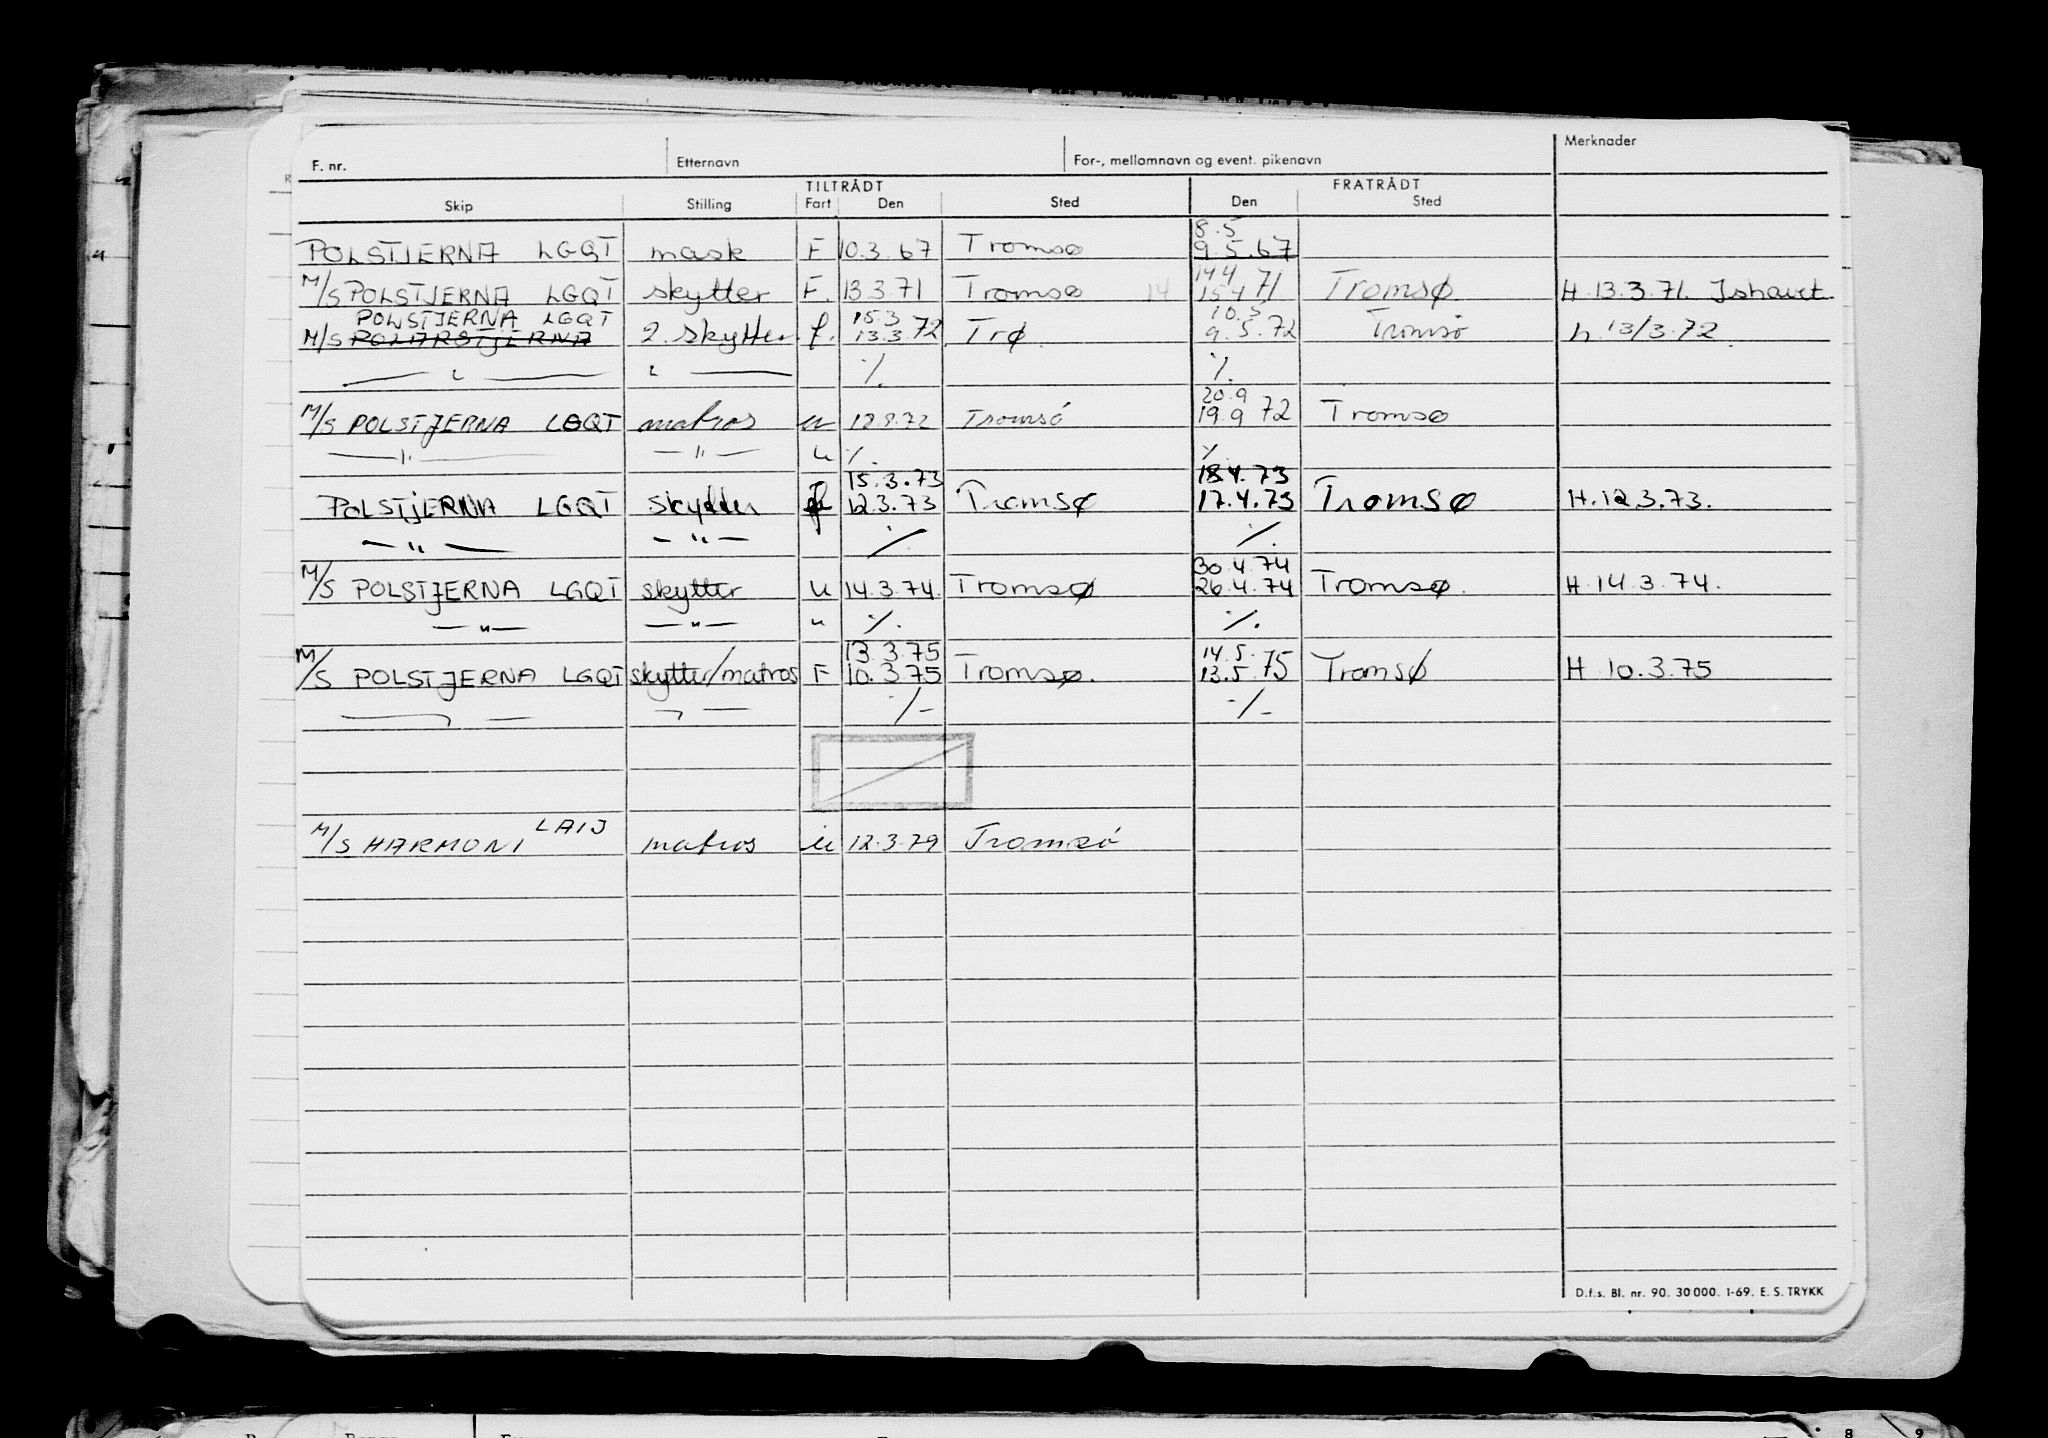 F. nr. Etternavn For-, mellomnavn og event. pikenavn Merknader
TILTRÅDT FRATRÅDT
Skip Stilling Fart Den Sted Den Sted
8.5
POLSTJERNA LGQT mask F 10.3.67 Tromsø 9.5.67
14 4
M/S POLSTJERNA LGQT skytter F. 13.3.71 Tromsø 14 15 4 71 Tromsø H. 13.3.71. Ishavet
POLSTJERNA LGQT 15.3 10.5
M/S POLARSTJERNA 2. skytter f. 13.3.72 Trø 9.5.72 Tromsø h. 13/3.72
— " — " — ·/. ·/.
20.9
M/S POLSTJERNA LGQT matros u 12.8.72 Tromsø 19.9 72 Tromsø
— " — — " — u ·/. ·/.
15.3.73 18.4.73
POLSTJERNA LGQT skytter f 12.3.73 Tromsø 17.4.73 Tromsø H.12.3.73.
— " — — " — ·/. ·/.
30.4.74
M/S POLSTJERNA LGQT skytter u 14.3.74. Tromsø 26.4.74 Tromsø. H.14.3.74.
— " — — " — " ·/. ·/.
13.3.75 14.5.
M/S POLSTJERNA LGQT skytter/matros F 10.3.75 Tromsø. 13.5.75 Tromsø H.10.3.75
— " — — " — ·/- ·/-
LAIJ
M/S HARMONI matros u 12.3.79 Tromsø
D.f.s. Bl. nr. 90. 30000. 1-69. E. S. TRYKK
8 9